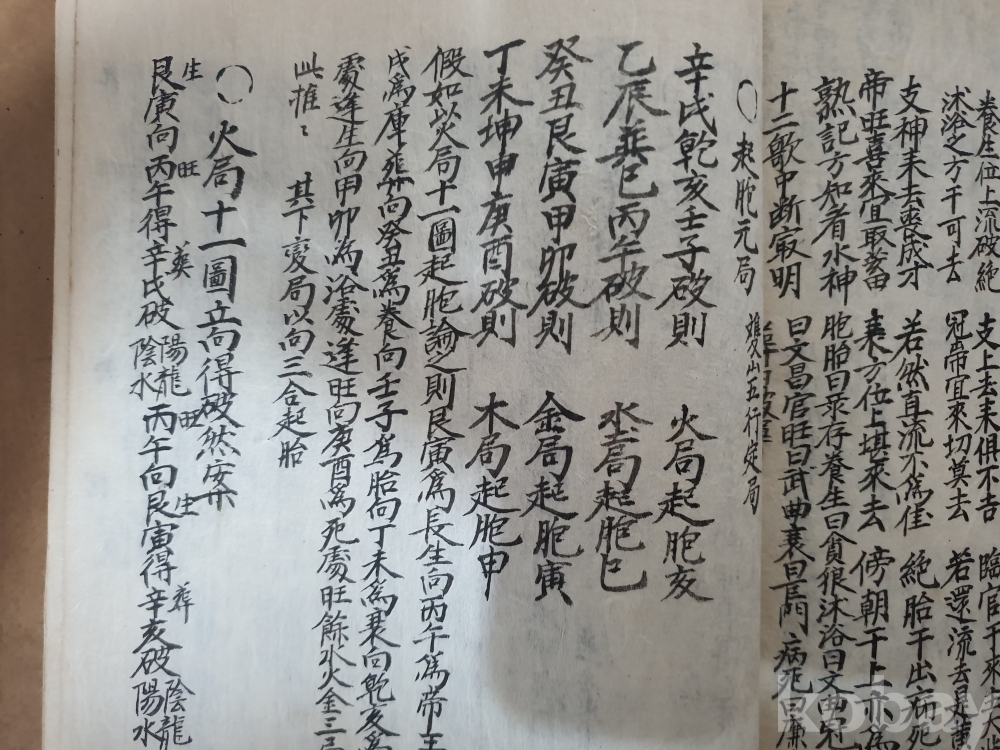 養生位上流破絶　支上去来俱不吉　臨官干来
沐浴之方干可去　冠帝宜來切莫去　若還流去是黄
支神来去喪成才　若然直流不爲佳　絶胎干出病死
帝旺喜來宜取畜　衰方位上堪來去　傍朝干上亦爲
熟記方知者水神　胞胎曰彔存養生曰貪狼沐浴曰文曲冠
十二歌中断㝡明　曰文昌官旺曰武曲衰曰巨門病死曰廉
○起胞元局　雙山五行定局
辛戌乾亥壬子破則　火局起胞亥
乙辰巽巳丙午破則　水局起胞巳
癸丑艮寅甲卯破則　金局起胞寅
丁未坤申庚酉破則　木局起胞申
假如以火局十一圖起胞論之則艮寅爲長生向丙午爲帝王
戌爲庫葬向癸丑爲養向壬子爲胎向丁未爲衰向乾亥爲
處逢生向甲卯爲浴處逢旺向庚酉爲死處旺餘水火金三局
此推〻　其下变局以向三合起胎
○火局十一圖立向得破然安
艮寅向丙午得辛戌破陽龍陰水丙午向艮寅得辛亥破陰龍陽水
生　旺　葬　旺　生　葬